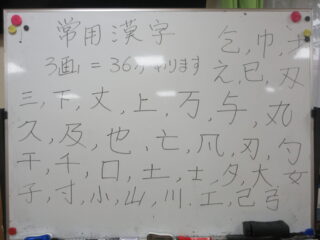 常用漢字
3画 = 36コあります
乞, 巾,
え, 已, 刄
三, 下, 丈, 上, 万, 与, 丸
久, 及, 也, 亡, 凡, 刃, 勺
干, 千, 口, 土, 士, 夕, 大, 女
子, 寸, 小, 山, 川, 工, 己, 弓